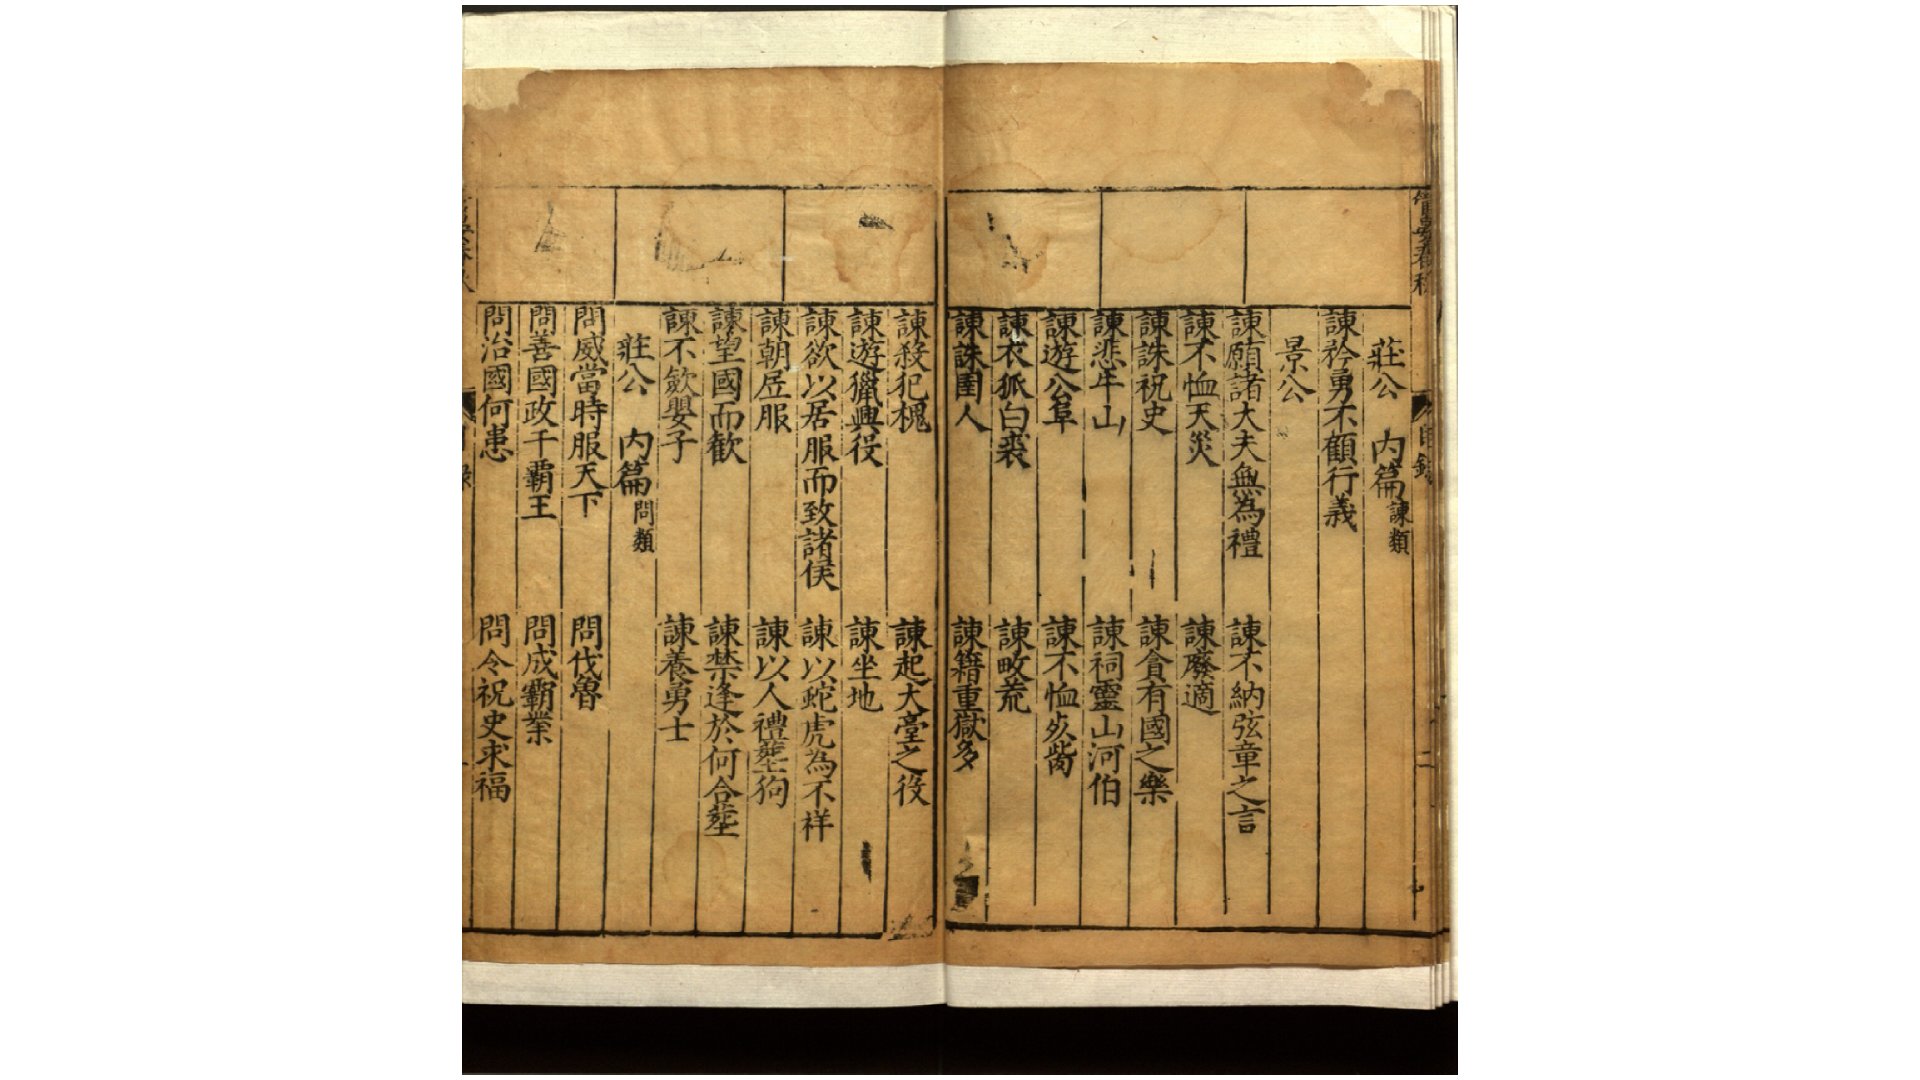 晏子春秋 目錄 二
莊公 內篇諫類
諫矜勇不顧行義
景公
諫願諸大夫無為禮 諫不納弦章之言
諫不恤天災 諫廢適
諫誅祝史 諫貪有國之樂
諫悲牛山 諫祠靈山河伯
諫遊公阜 諫不恤歺胔
諫衣狐白裘 諫畋荒
諫誅圉人 諫籍重獄多
諫殺犯槐 諫起大臺之役
諫遊獵興役 諫坐地
諫欲以居服而致諸侯 諫以蛇虎為不祥
諫朝居服 諫以人禮塟狗
諫望國而歎 諫禁逢於何合塟
諫不斂嬰子 諫養勇士
莊公 內篇問類
問威當時服天下 問伐魯
問善國政千霸王 問成霸業
問治國何患 問令祝史求福